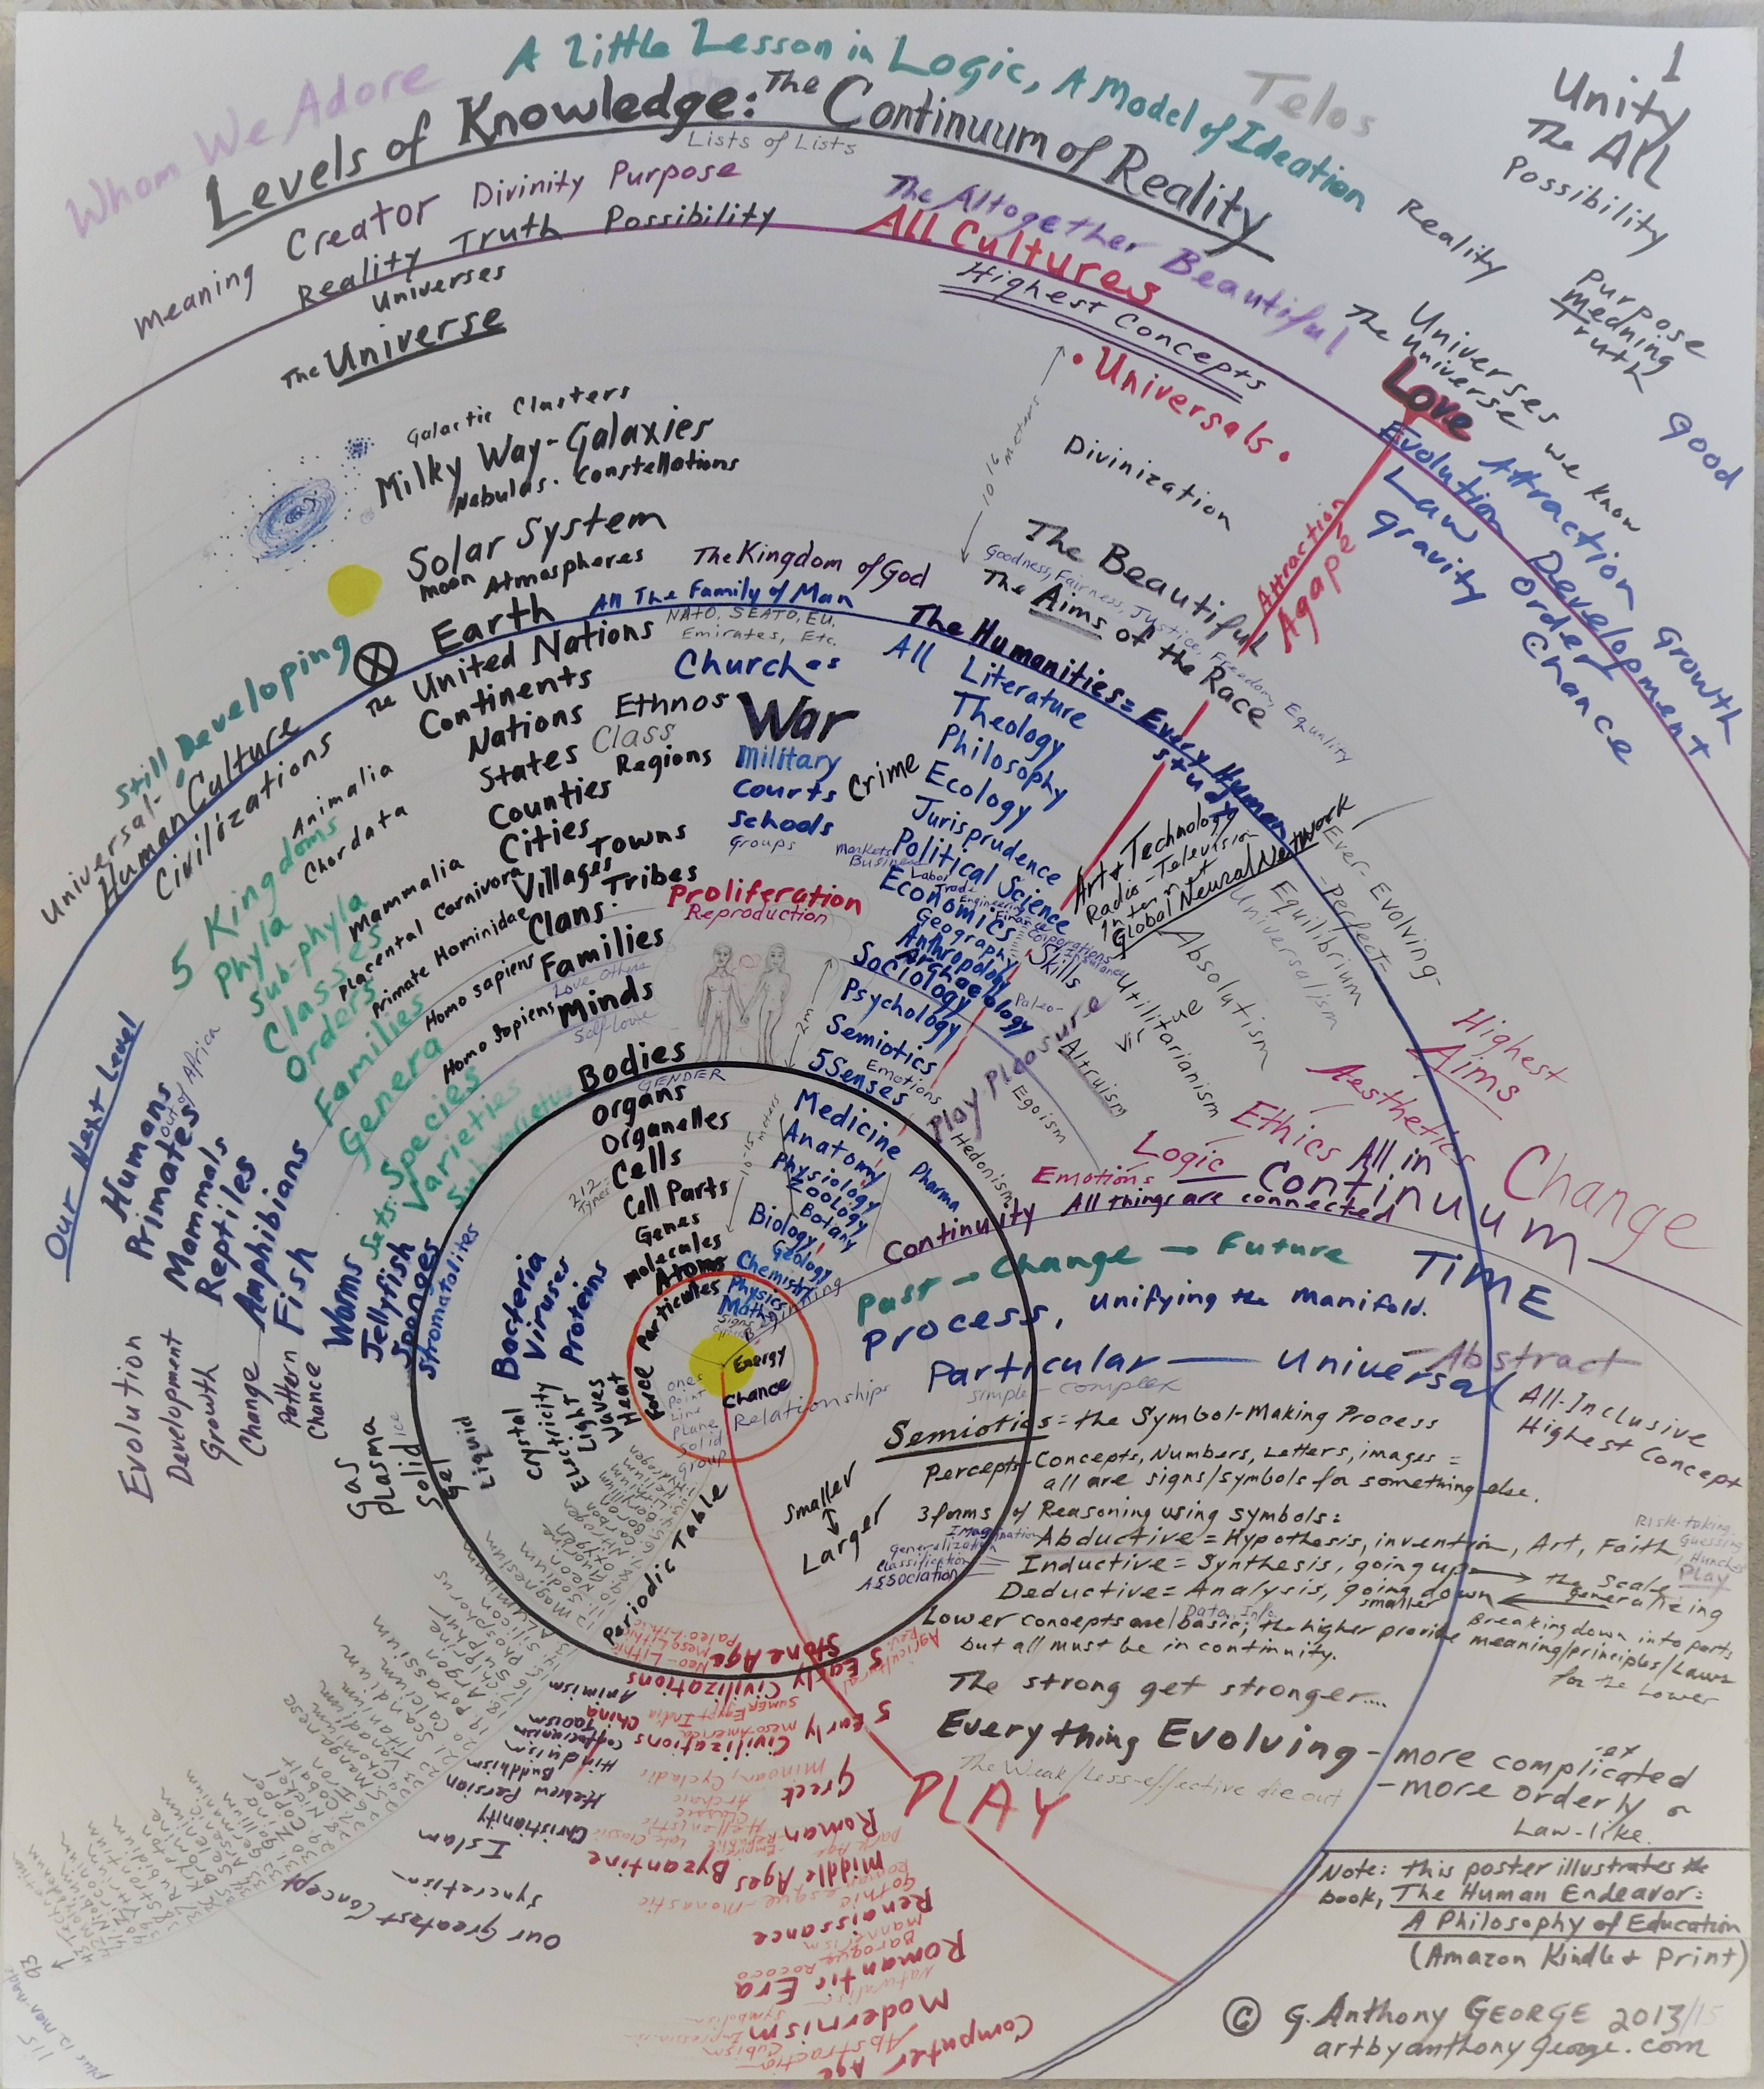 A Little Lesson in Logic, A Model of Ideation
Whom We Adore
Levels of Knowledge: The Continuum of Reality
Lists of Lists
Telos
1
Unity
The All
Possibility
Reality
Purpose
Meaning
Truth
Good
Meaning Creator Divinity Purpose
Reality Truth Possibility
Universes
The Universe
The Altogether Beautiful
All Cultures
Highest Concepts
• Universals •
10 16 meters
Divinization
The Beautiful
Goodness, Fairness, Justice, Freedom, Equality
The Aims of the Race
Universes
The Universe we know
Love
Attraction
Agapé
Evolution Attraction Growth
Law Development
gravity Order
Chance
Galactic Clusters
Milky Way-Galaxies
Nebulas. Constellations
Solar System
moon Atmospheres
Earth
The Kingdom of God
All The Family of Man
NATO, SEATO, EU,
Emirates, Etc.
Still Developing
Universal-
Human Culture
Civilizations
The United Nations
Continents
Nations Ethnos
States Class
Counties Regions
Cities
Towns
Villages
Tribes
Clans
Families
Love others
Minds
Self Love
Churches
War
Military
Courts
Crime
Schools
Groups
Markets
Business
Proliferation
Reproduction
2m
The Humanities = Every Human Study
All Literature
Theology
Philosophy
Ecology
Jurisprudence
Political Science
Labor
Trade
Economics
Engineering
Finance
Corporations
Insurance
Geography
Anthropology
Archaeology
Paleo-
Sociology
Psychology
Semiotics
Emotions
5 Senses
Skills
Art & Technology
Radio-Television
Internet
Global Neural Network
Ever-Evolving
-Perfect=
Equilibrium
Universalism
Absolutism
Utilitarianism
Virtue
Altruism
Egoism
Hedonism
Play Pleasure
Highest
Aims
Aesthetics
Ethics
Logic
Emotions
5 Kingdoms
Animalia
Phyla
Chordata
Sub-phyla
Classes
Mammalia
Placental Carnivora
Orders
Primate Hominidae
Families
Homo sapiens
Genera
Homo Sapiens
Sets: Species
Varieties
Sub Varieties
Our Next Level
Humans
out of Africa
Primates
Mammals
Reptiles
Amphibians
Fish
Worms
Jellyfish
Sponges
Stromatolites
Bacteria
Viruses
Proteins
Evolution
Development
Growth
Change
Pattern
Chance
Gas
Plasma
Solid ice
Gel
Liquid
Crystal
Electricity
Light
Waves
Heat
Force
Bodies
GENDER
Organs
Organelles
Cells
212 Types
Cell Parts
Genes
Molecules
Atoms
Particules
10-15 meters
Medicine
Pharma
Anatomy
Physiology
Zoology
Botany
Biology
Geology
Chemistry
Physics
Math
Signs
Beginning
Energy
Chance
Relationships
Ones
Point
Line
Plane
Solid
Group
Continuity All things are connected
All in
Continuum
Change
Past → Change → Future
TIME
Process, unifying the manifold.
Particular — Universal
Abstract
simple - complex
All-Inclusive
Highest Concept
Semiotics = the Symbol-Making Process
Percepts-Concepts, Numbers, Letters, images =
all are signs/symbols for something else.
3 forms of Reasoning using symbols:
Imagination
Generalization
Classification
Association
Abductive = Hypothesis, invention, Art, Faith
Risk-taking
Guessing
Hunches
PLAY
Inductive = Synthesis, going up → the scale
generalizing
Deductive = Analysis, going down
smaller
Breaking down into parts
Data, Info
Lower concepts are basic; the higher provide meaning/principles/Laws
for the Lower
but all must be in continuity.
Smaller
↕
Larger
The strong get stronger....
Everything Evolving - more complicated
-ex
The Weak/Less-effective die out
- more orderly or
Law-like.
PLAY
Periodic Table
Hydrogen
Helium
Lithium
Beryllium
Boron
Carbon
Nitrogen
Oxygen
Fluorine
Neon
11. Sodium
12 Magnesium
13. Aluminum
14. Silicon
15. Phosphorus
16. Sulphur
17. Chlorine
18. Argon
19 Potassium
20 Calcium
21 Scandium
22 Titanium
Vanadium
Chromium
Manganese
Iron
Cobalt
Nickel
Copper
Zinc
Gallium
Germanium
Arsenic
Selenium
Bromine
Krypton
Rubidium
Strontium
Yttrium
Zirconium
93
115
plus 12 man made
Stone Age
Paleo-Lithic
Meso Lithic
Neo-Lithic
Agricultural Rev.
5 Early Civilizations
Sumer Egypt India China
Meso America
5 Early Civilizations
Minoan, Cycladic
Greek
Archaic
Classic
Hellenistic
Roman
Republic
Empire
Late Classic
Byzantine
Dark Age
Middle Ages
Romanesque-Monastic
Gothic
Renaissance
Mannerism
Baroque
Rococo
Romantic Era
Naturalism
Symbolism
Modernism
Impressionism
Cubism
Abstraction
Computer Age
Animism
Taoism
Confucianism
Hinduism
Buddhism
Hebrew Persian
Christianity
Islam
Syncretism
Our Greatest Concept
Note: this poster illustrates the
book, The Human Endeavor:
A Philosophy of Education
(Amazon Kindle & Print)
© G. Anthony GEORGE 2013/15
artbyanthonygeorge.com